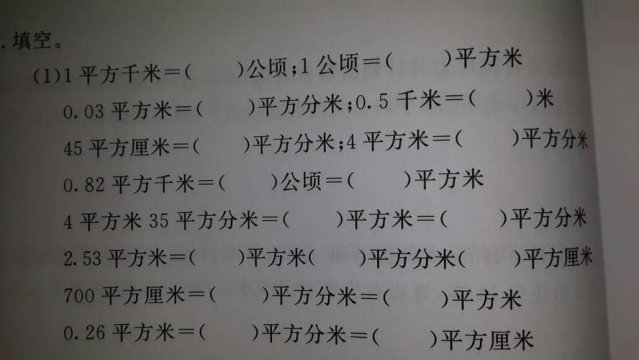 .填空。
(1)1平方千米=(　　)公顷;1公顷=(　　)平方米
0.03平方米=(　　)平方分米;0.5千米=(　　)米
45平方厘米=(　　)平方分米;4平方米=(　　)平方分米
0.82平方千米=(　　)公顷=(　　)平方米
4平方米35平方分米=(　　)平方米=(　　)平方分米
2.53平方米=(　　)平方米(　　)平方分米(　　)平方厘米
700平方厘米=(　　)平方分米=(　　)平方米
0.26平方米=(　　)平方分米=(　　)平方厘米